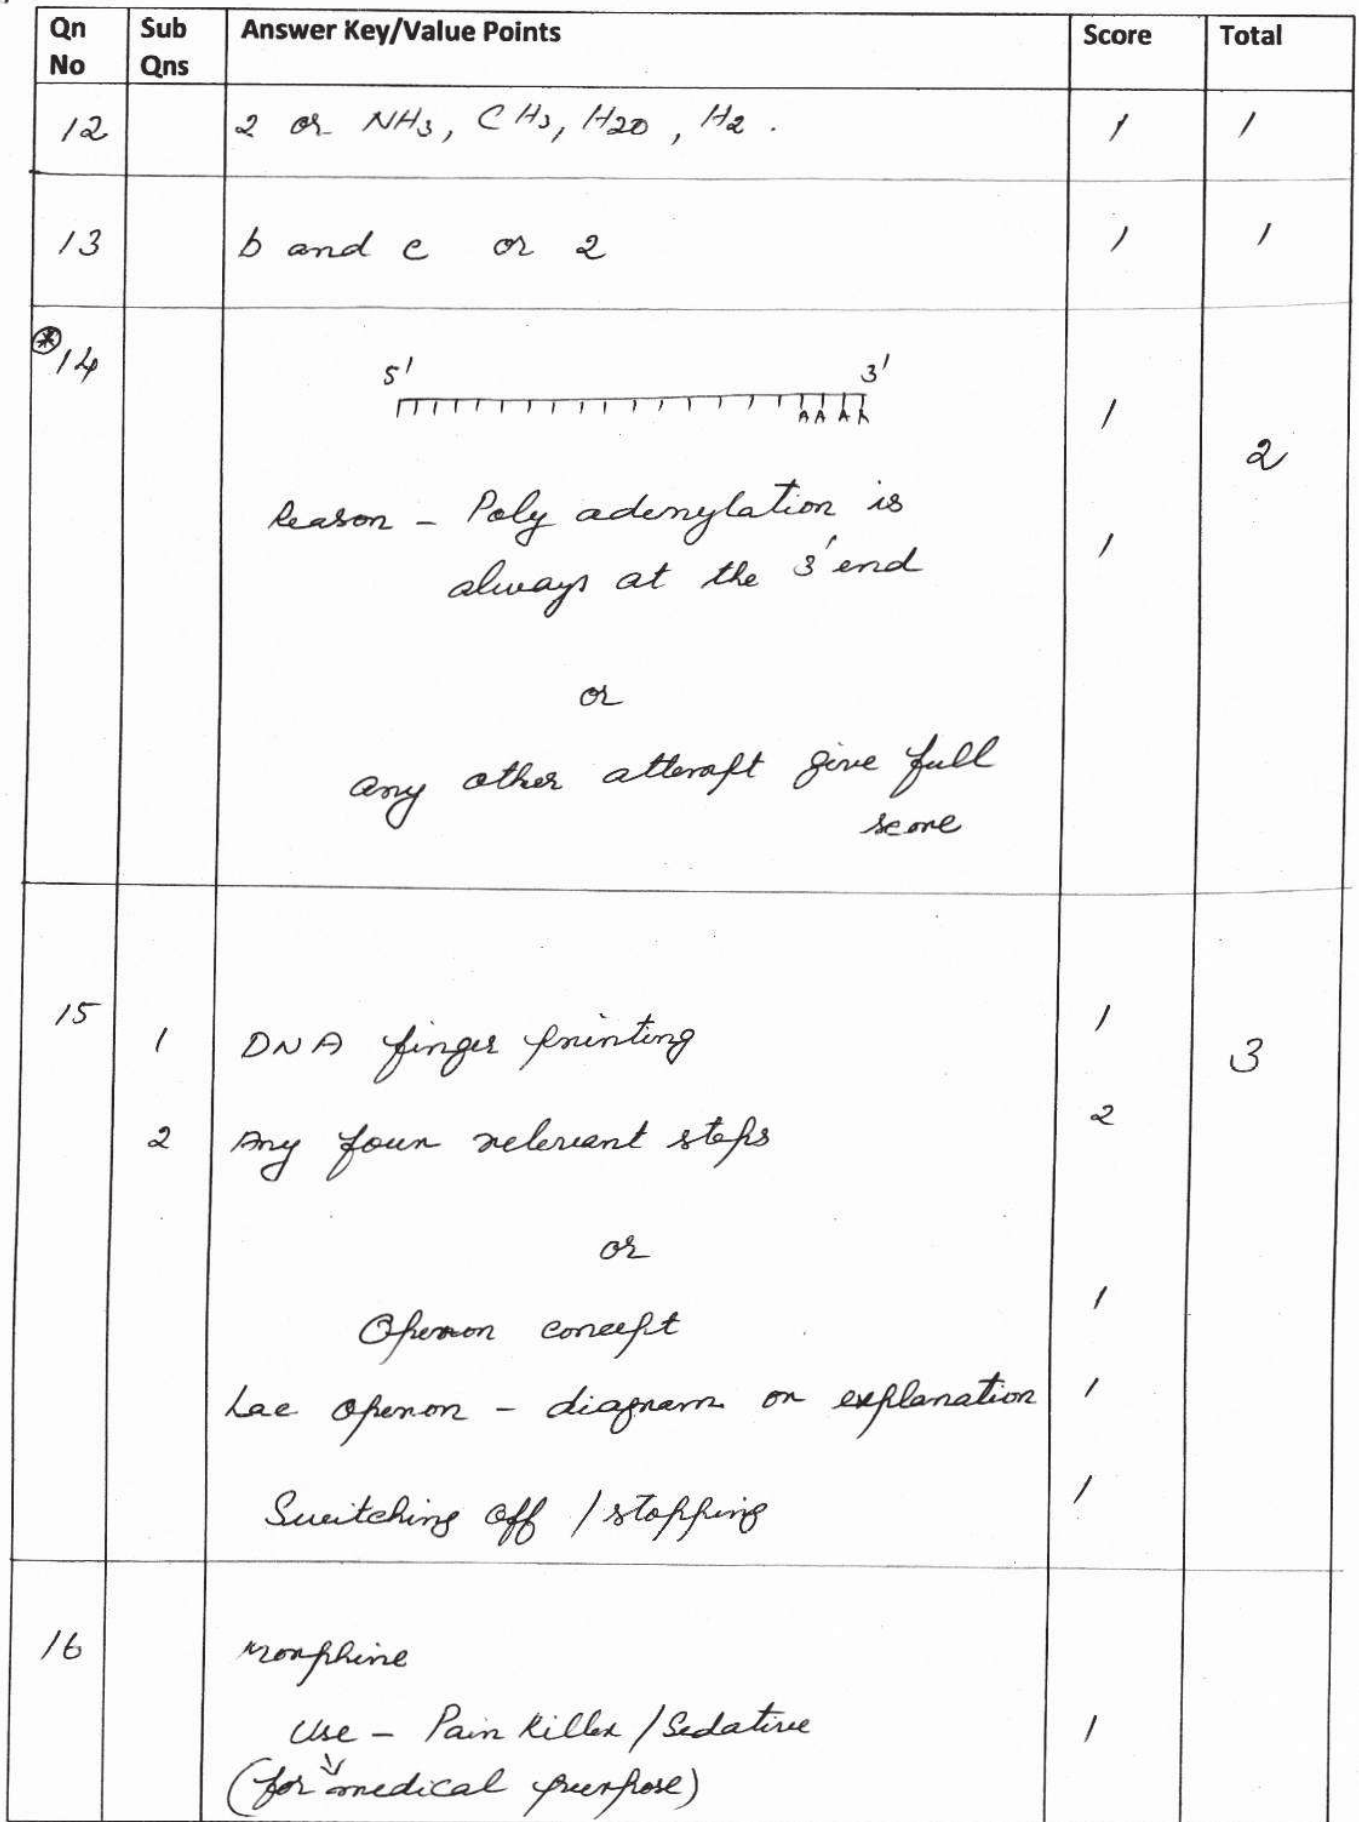 Qn No Sub Qns Answer Key/Value Points Score Total
12 2 or NH3, CH3, H2O, H2. 1 1
13 b and c or 2 1 1
* 14
5' 3'
A A A A 1
2
Reason - Poly adenylation is
always at the 3' end 1
or
any other attempt give full
score
15 1 DNA finger printing 1
3
2 Any four relevant steps 2
or
Operon concept 1
Lac operon - diagram or explanation 1
Switching off / stopping 1
16 Morphine
Use - Pain Killer / Sedative 1
(for medical purpose)